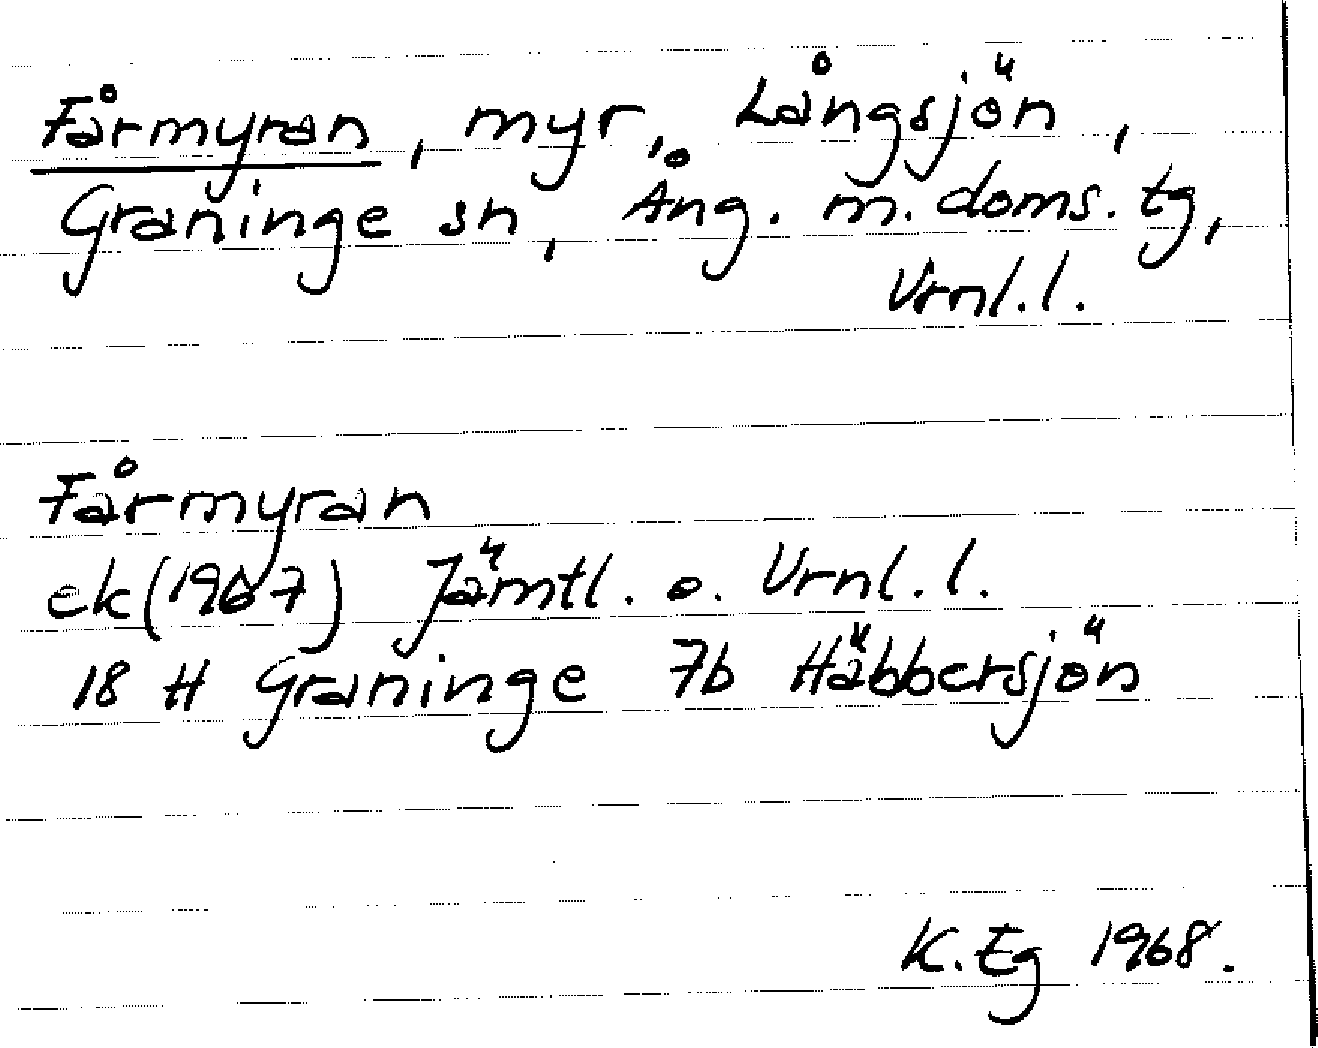 Fårmyran, myr, Långsjön,
Graninge sn, Ång. m. doms. tg,
Vrnl. l.
Fårmyran
ek (1967) Jämtl. o. Vrnl. l.
18 H Graninge 7b Häbbersjön
K. Eg 1968.